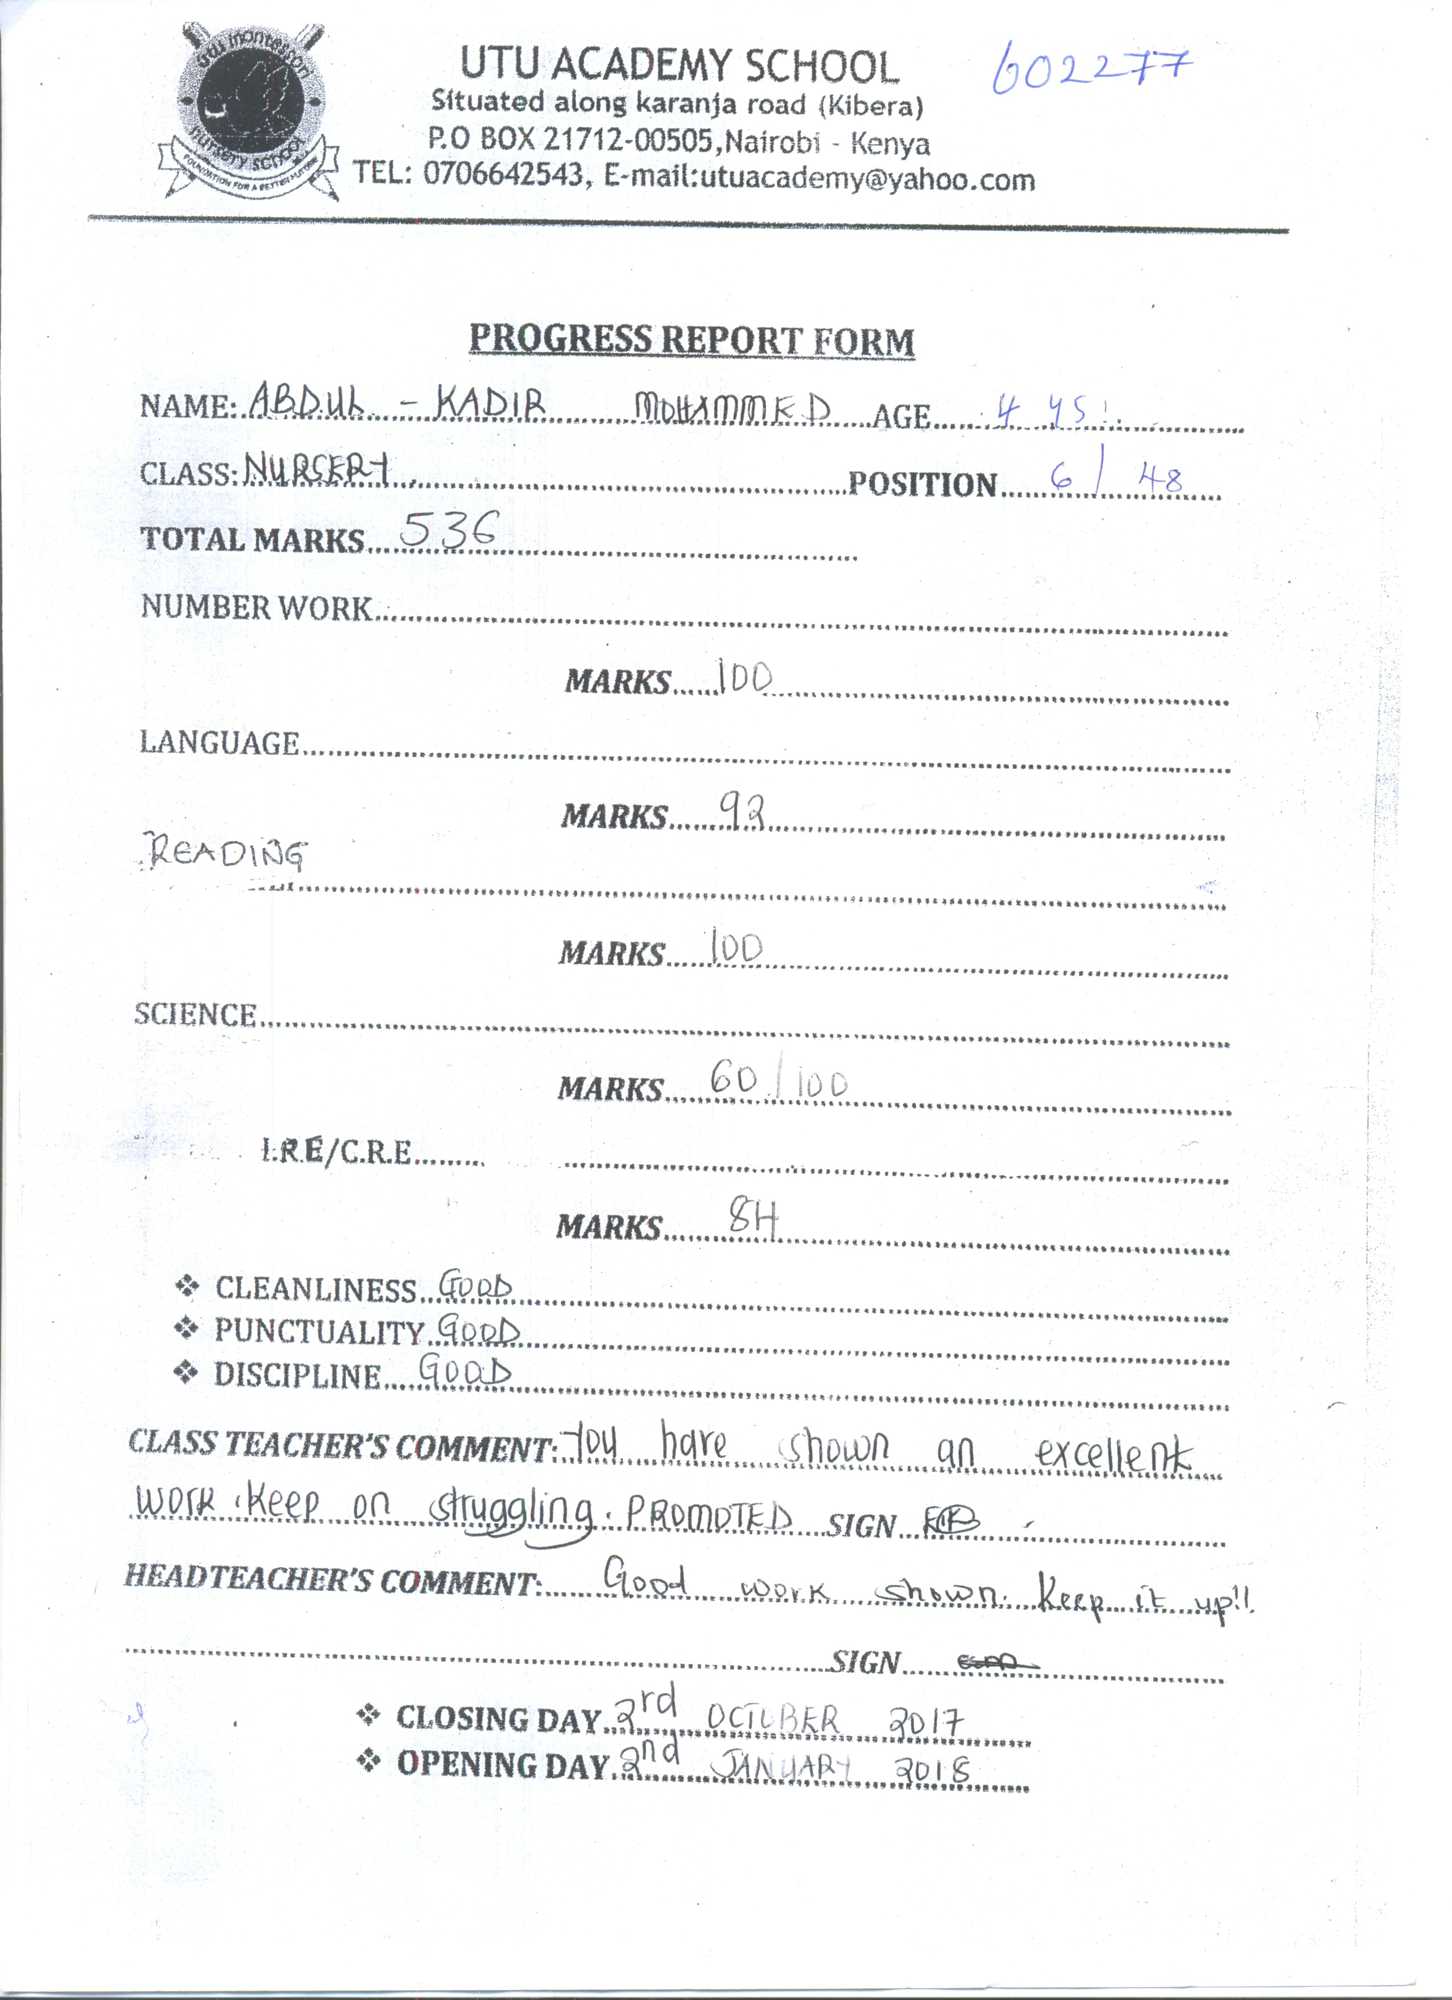 utu montessori
nursery school
FOUNDATION FOR A BETTER FUTURE
UTU ACADEMY SCHOOL
602277
Situated along karanja road (Kibera)
P.O BOX 21712-00505,Nairobi - Kenya
TEL: 0706642543, E-mail:utuacademy@yahoo.com
PROGRESS REPORT FORM
NAME: ABDUL - KADIR MOHAMMED AGE 4 YS
CLASS: NURSERY POSITION 6 / 48
TOTAL MARKS 536
NUMBER WORK
MARKS 100
LANGUAGE
MARKS 92
READING
MARKS 100
SCIENCE
MARKS 60/100
I.R.E/C.R.E
MARKS 84
❖ CLEANLINESS GOOD
❖ PUNCTUALITY GOOD
❖ DISCIPLINE GOOD
CLASS TEACHER'S COMMENT: You have shown an excellent
work. Keep on struggling. PROMOTED SIGN
HEADTEACHER'S COMMENT: Good work shown. Keep it up!!
SIGN
❖ CLOSING DAY 2rd OCTOBER 2017
❖ OPENING DAY 2nd JANUARY 2018